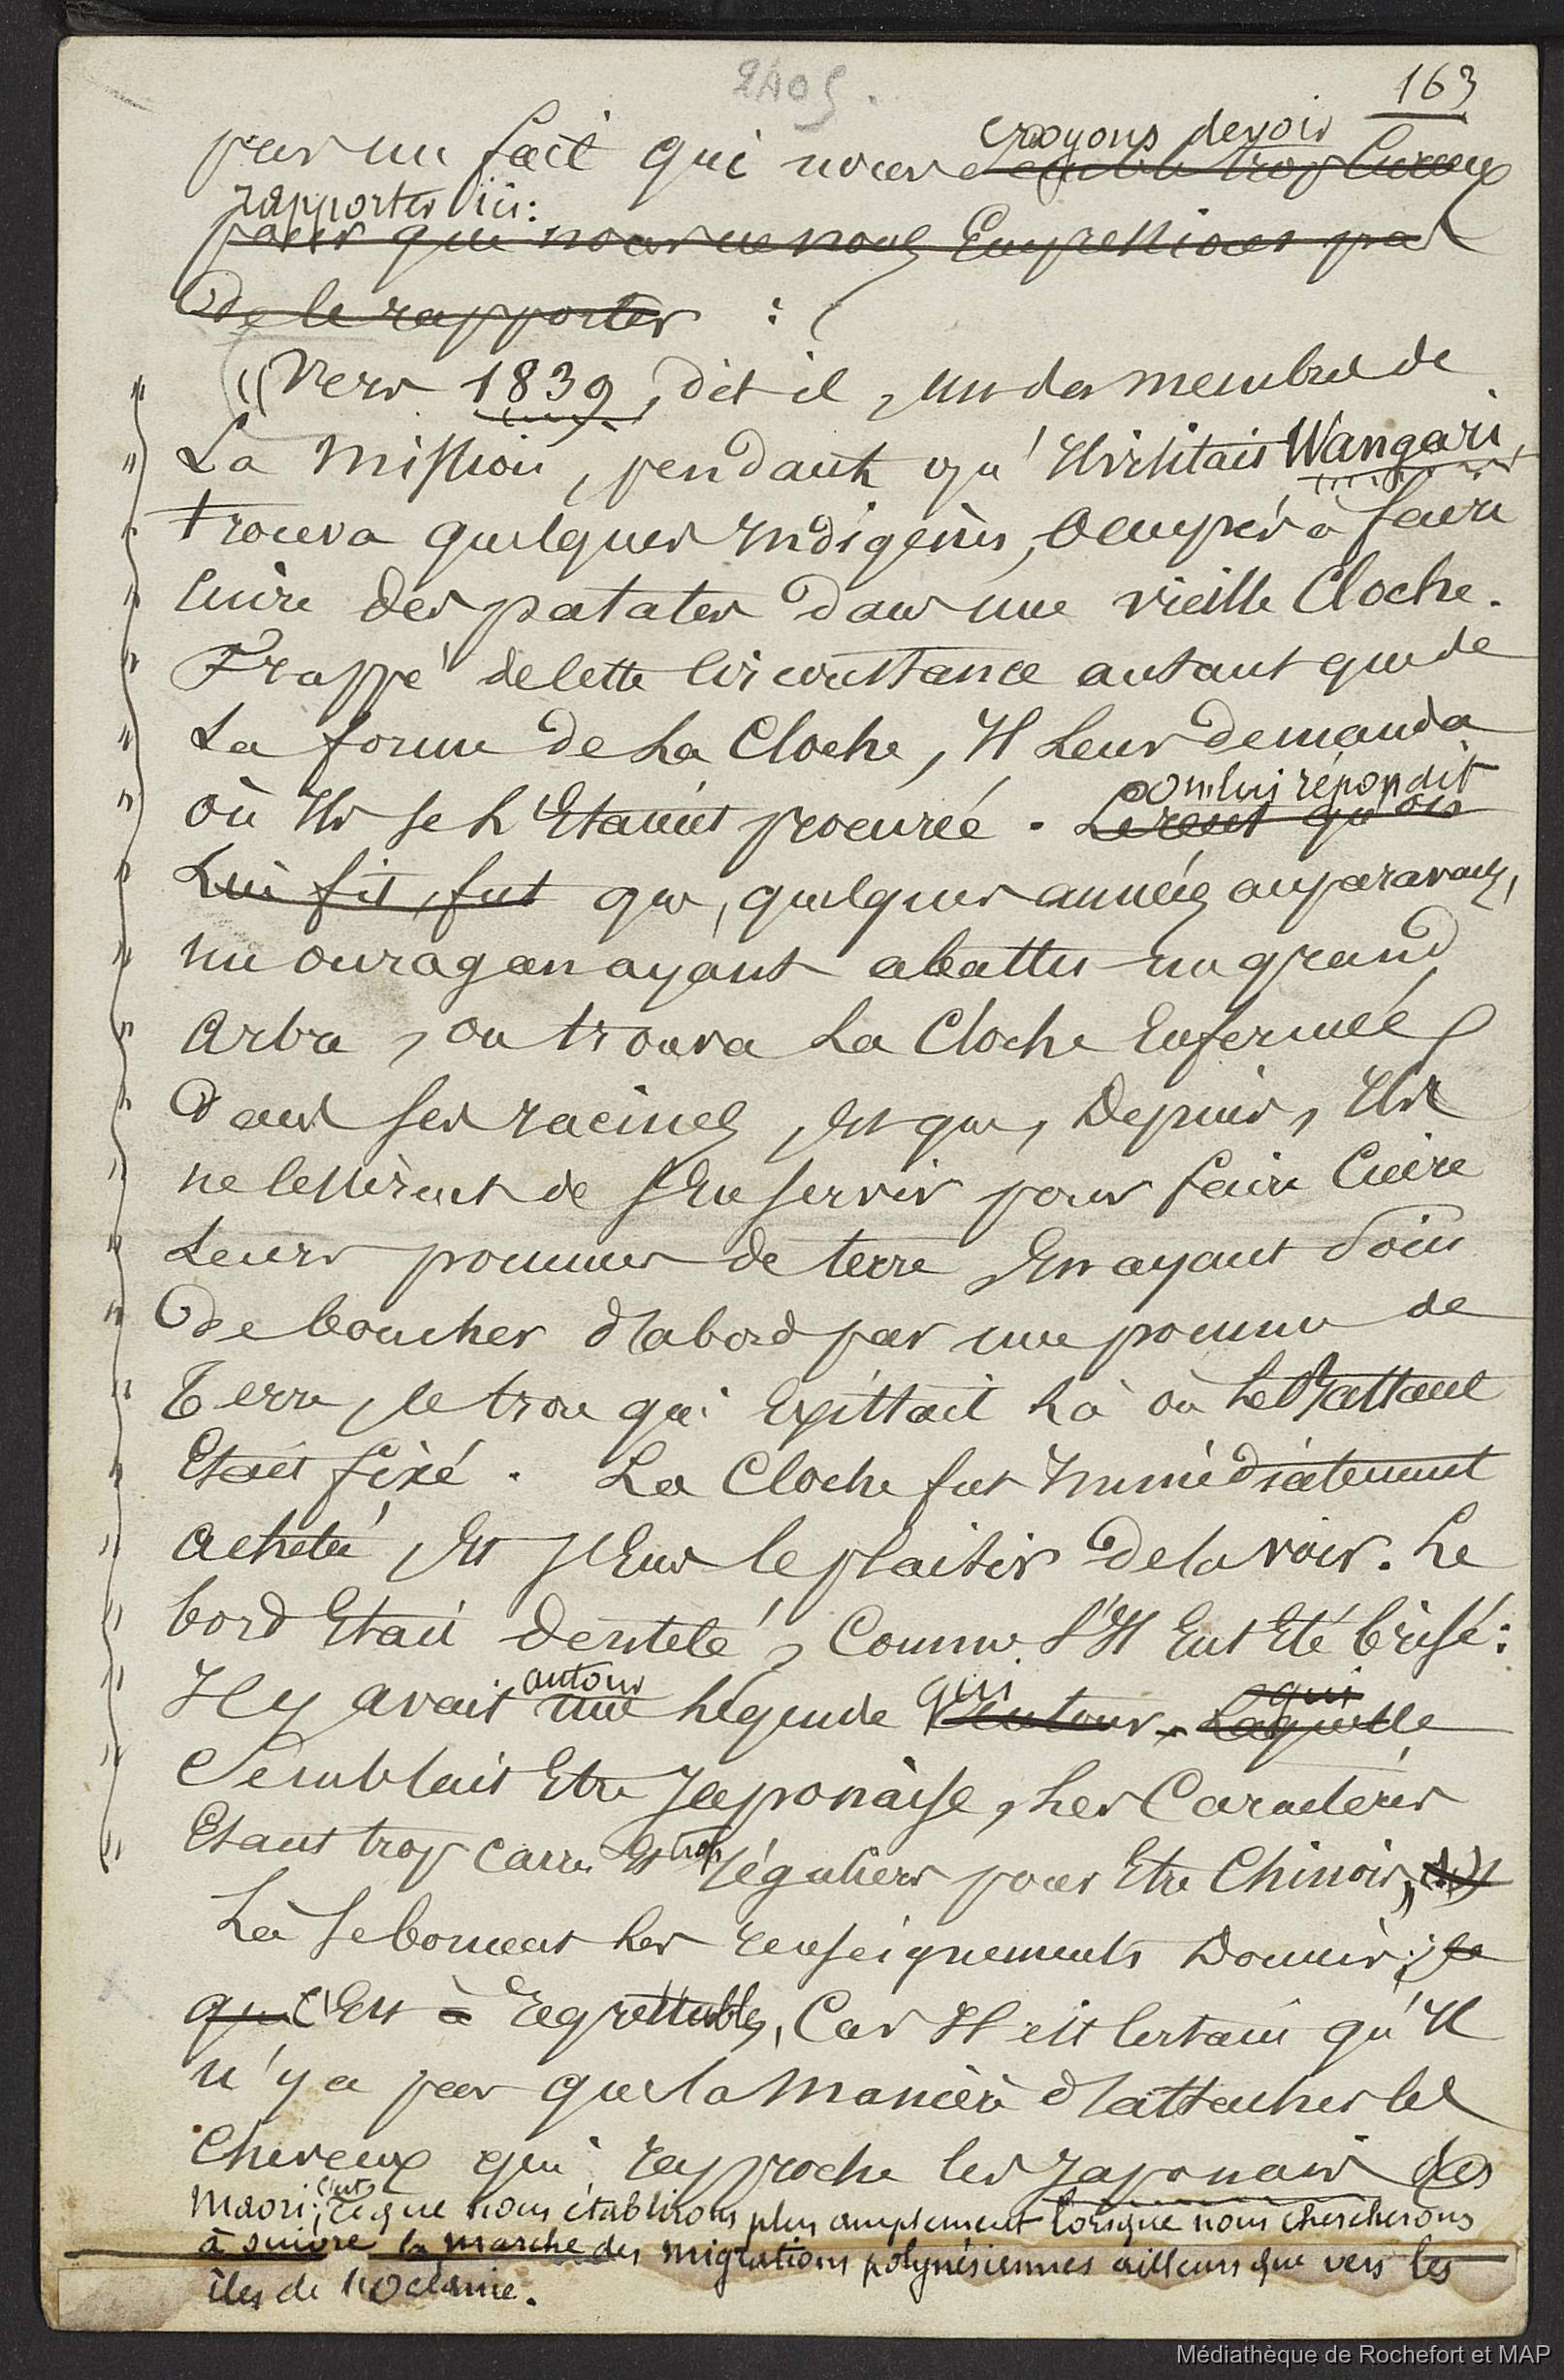 2405.
163
croyons devoir
par un fait qui nous semble trop curieux
rapporter ici:
pour que nous ne nous empressions pas
de le rapporter :
"Vers 1839, dit il, un des membres de
" la mission, pendant qu'il visitait Wangari,
" trouva quelques indigènes, occupés à faire
" cuire des patates dans une vieille cloche.
" Frappé de cette circonstance autant que de
" la forme de la cloche, il leur demanda
on lui répondit
" où ils se l'étaient procurée. Le récit qu'on
" lui fit, fut que, quelques années auparavant,
" un ouragan ayant abattu un grand
" arbre, on trouva la cloche enfermée
" dans ses racines, et que, depuis, ils
" ne cessèrent de s'en servir pour faire cuire
" leurs pommes de terre en ayant soin
" de boucher d'abord par une pomme de
" terre, le trou qui existait là où le battant
" était fixé. La cloche fut immédiatement
" acheté, et j'eus le plaisir de la voir. Le
" bord était dentelé, comme s'il eut été brisé:
autour qui qui
" Il y avait une légende autour. Laquelle
" semblait être japonaise, les caractères
trop
" étant trop carrés et réguliers pour être Chinois,"
Là se bornent les renseignements donnés; ce
qui c'est à regrettable, car il est certain qu'il
n'y a pas que la manière d'attacher les
cheveux qui rapproche les Japonais des
c'est
Maori; ce que nous établirons plus amplement lorsque nous chercherons
à suivre la marche des migrations polynésiennes ailleurs que vers les
îles de l'Océanie.
Médiathèque de Rochefort et MAP